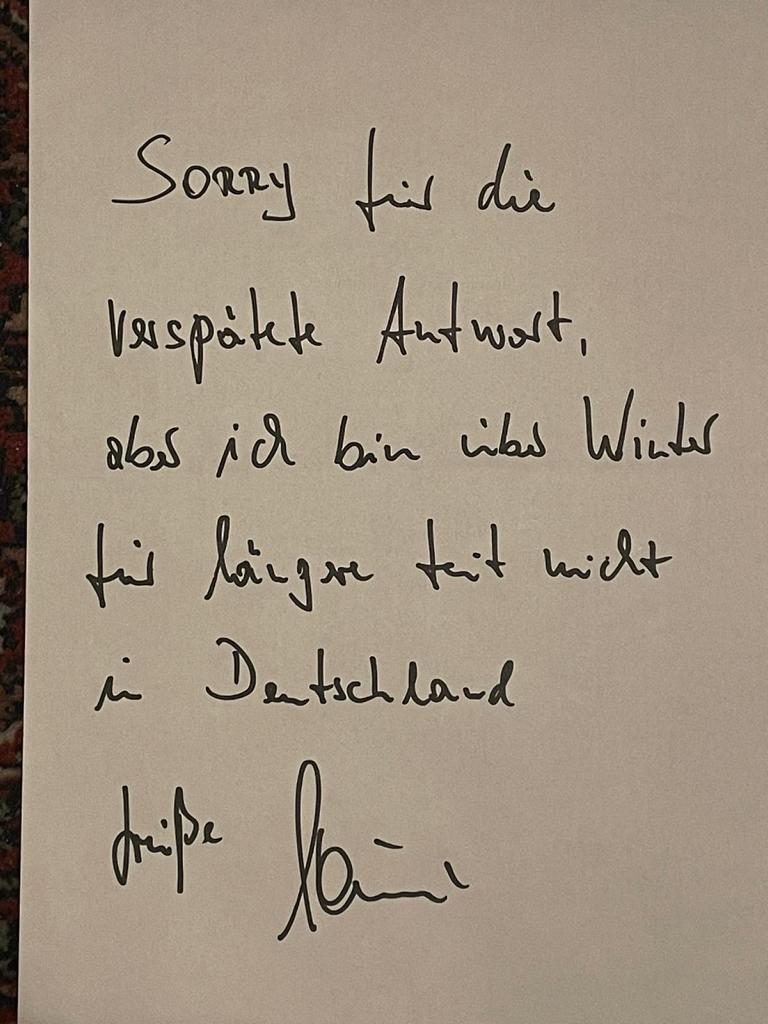 SORRY für die
verspätete Antwort,
aber ich bin über Winter
für längere Zeit nicht
in Deutschland
Grüße